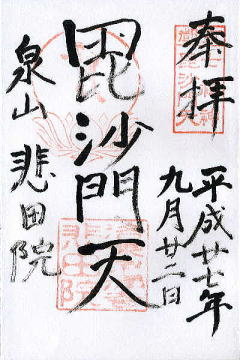 奉拝
平成廿七年
九月廿二日
毘沙門天
泉山 悲田院